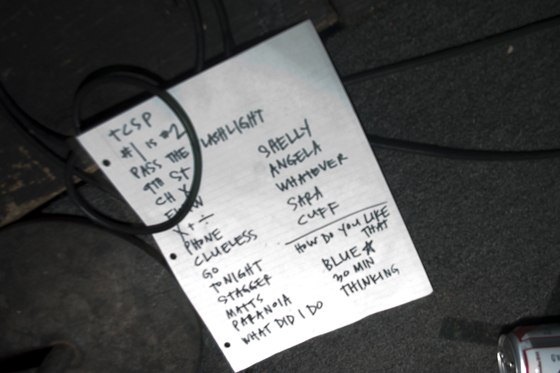 TCSP
#1 IS #2
PASS THE
9TH ST
CH X
X + ÷
PHONE
CLUELESS
GO
TONIGHT
STAGGER
MATTS
PARANOIA
WHAT DID I DO
SHELLY
ANGELA
WHATEVER
SARA
CUFF
HOW DO YOU LIKE
THAT
BLUE ★
30 MIN
THINKING